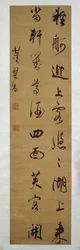 輕舸迎上客悠悠湖上來
當軒對尊酒四面芙蓉開